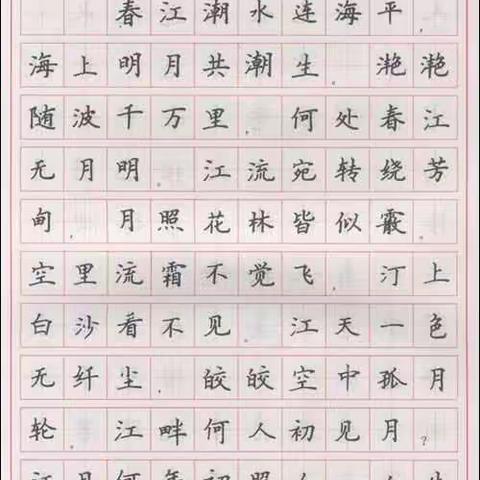 春江潮水连海平，
海上明月共潮生。滟滟
随波千万里，何处春江
无月明。江流宛转绕芳
甸，月照花林皆似霰。
空里流霜不觉飞，汀上
白沙看不见。江天一色
无纤尘，皎皎空中孤月
轮。江畔何人初见月？
江月何年初照人？人生